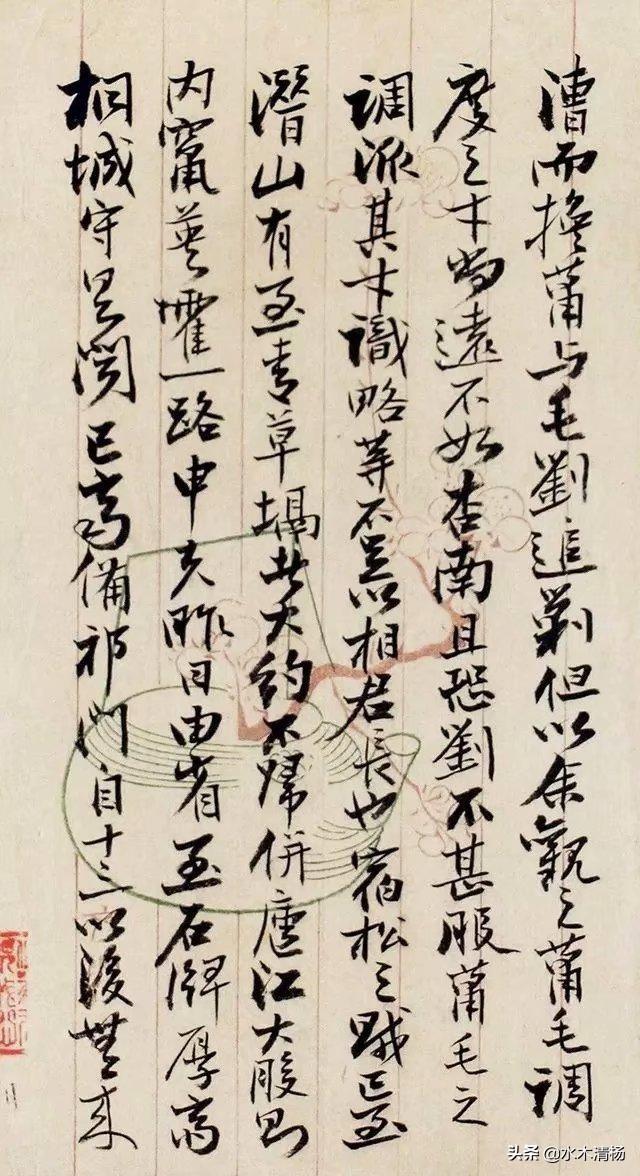 漕而換蕭与毛劉追剿但以余觀之蕭毛調
度之才尚遠不如杏南且恐劉不甚服蕭毛之
調派其才識略等不以相君長也宿松之賊已至
潛山有至青草塥者大約不歸併廬江大股則
內竄英霍一路申夫昨日由省至石牌厚高
桐城守具聞已齊備祁門自十三以後無來
头条 @水木清杨